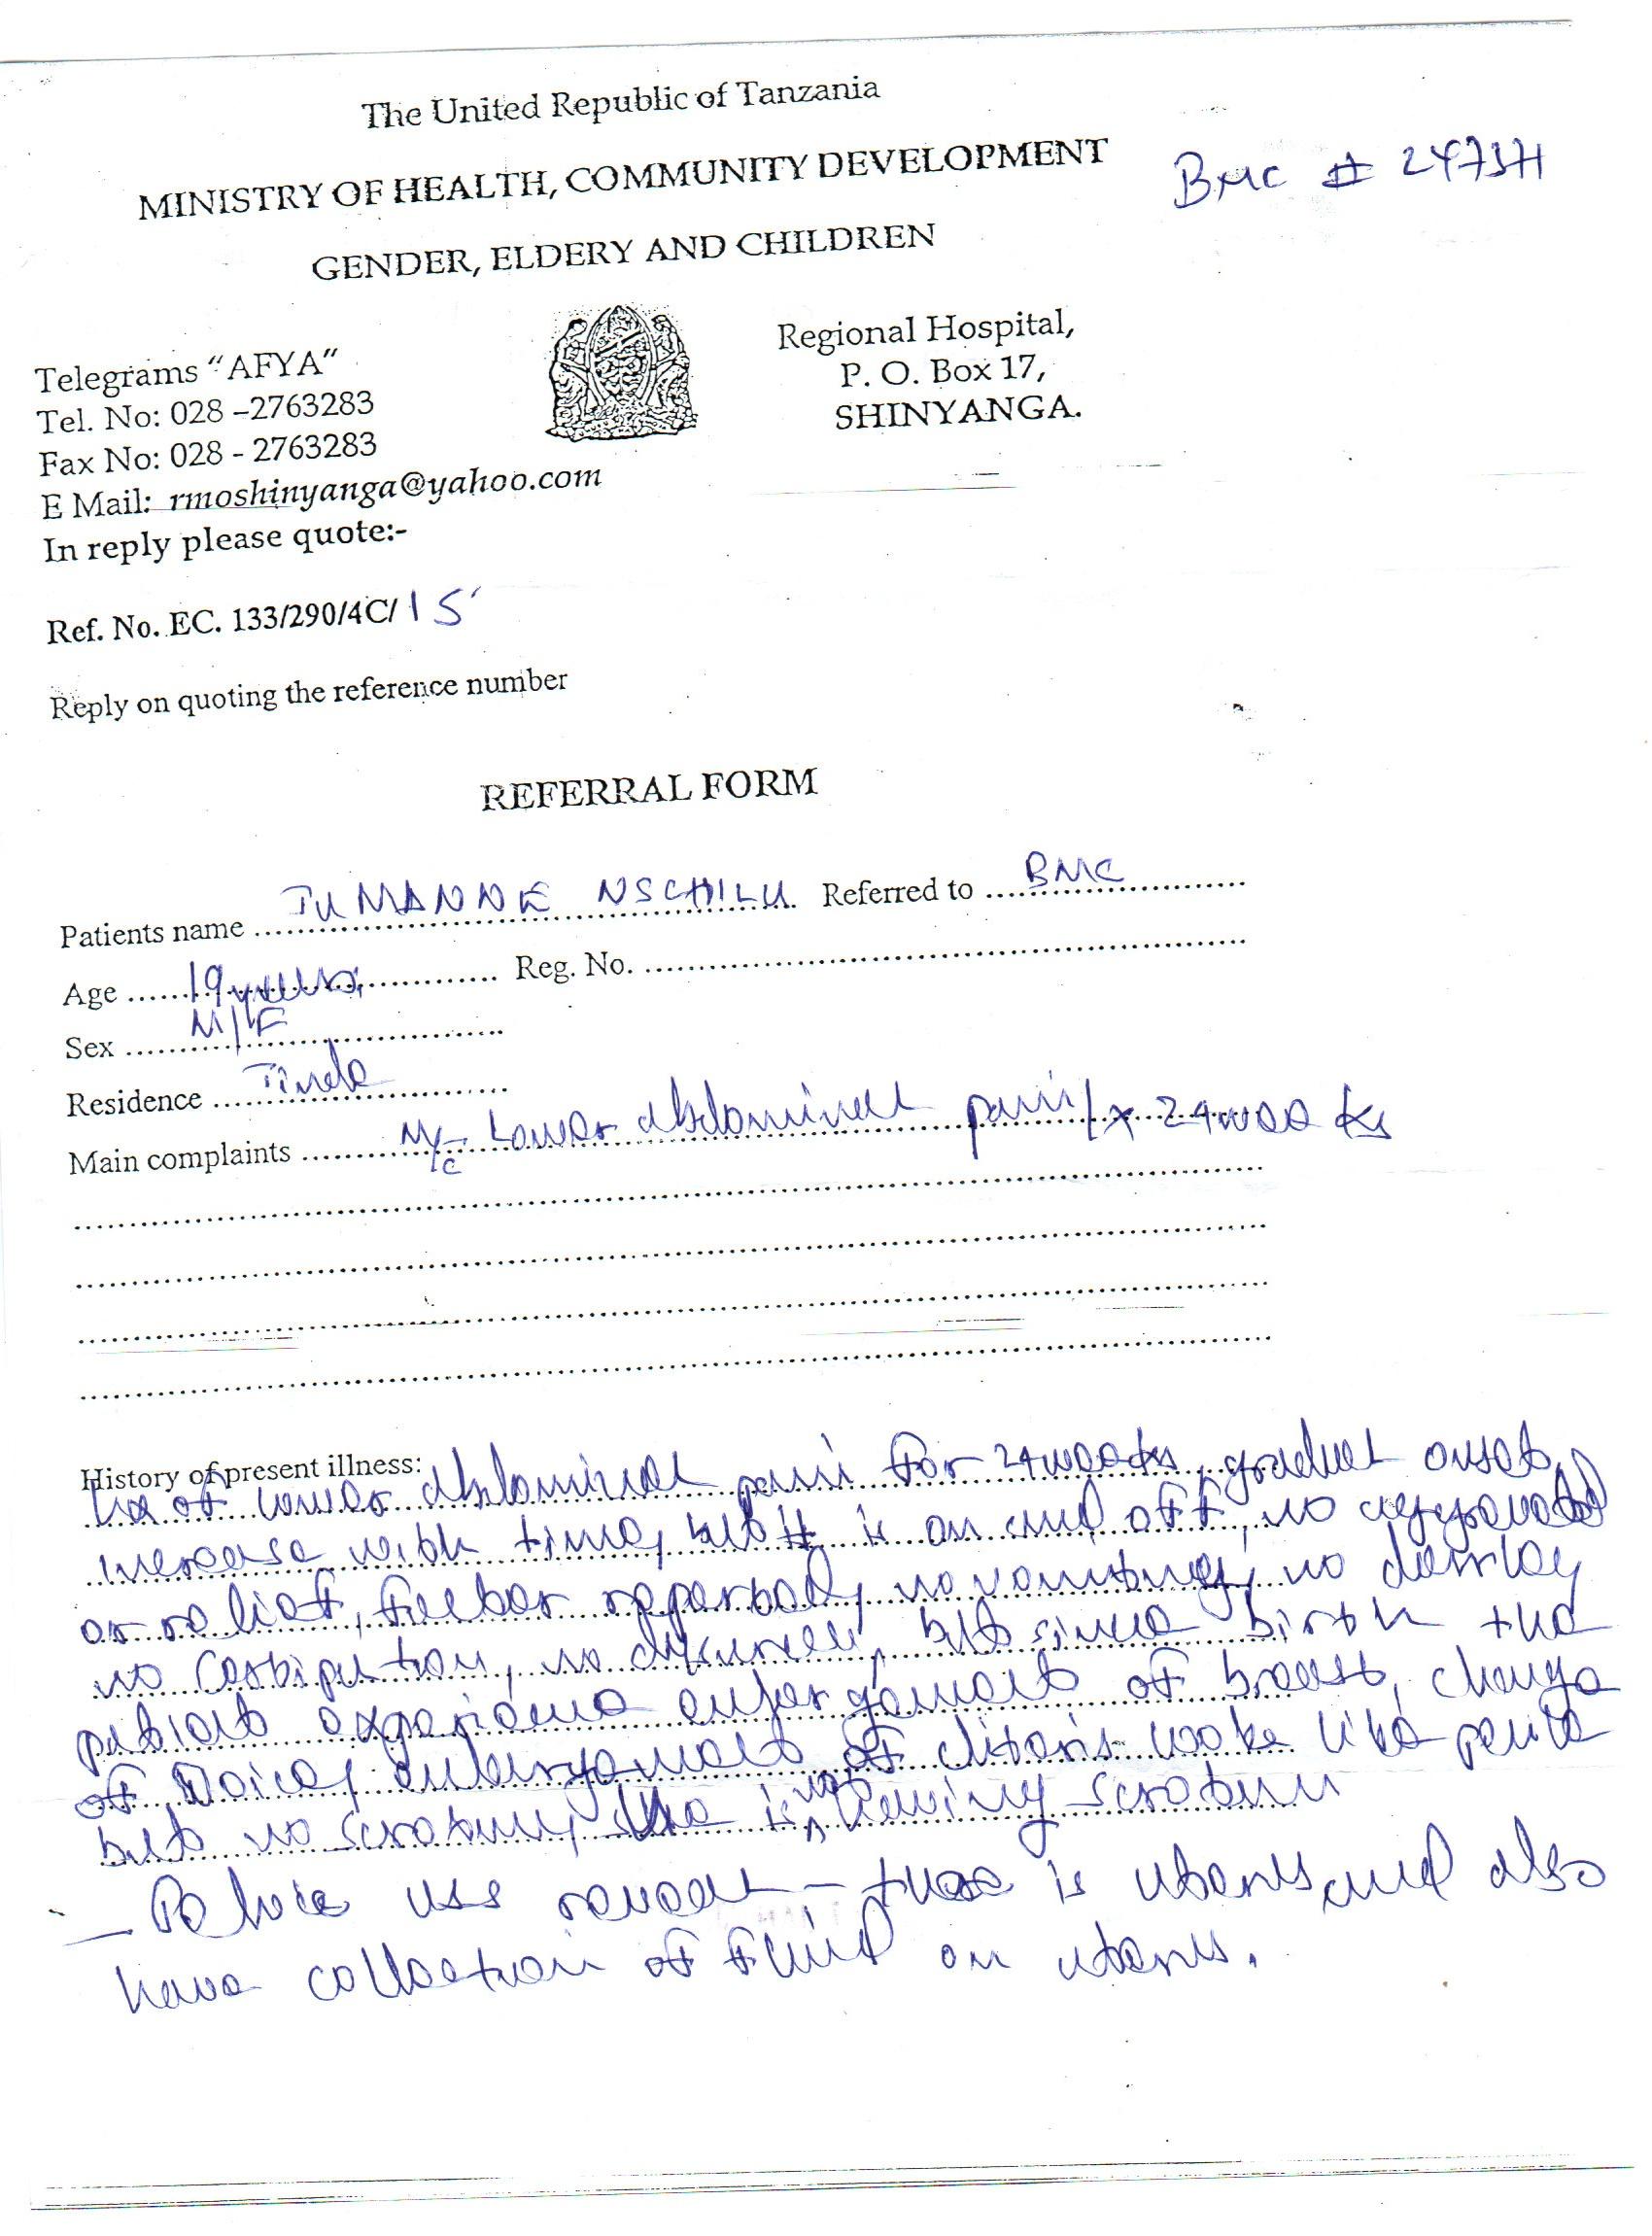 The United Republic of Tanzania
MINISTRY OF HEALTH, COMMUNITY DEVELOPMENT
BMC #
GENDER, ELDERY AND CHILDREN
Telegrams "AFYA"
Tel. No: 028 –2763283
Fax No: 028 - 2763283
E Mail: rmoshinyanga@yahoo.com
In reply please quote:-
Regional Hospital,
P. O. Box 17,
SHINYANGA.
Ref. No. EC. 133/290/4C/15
Reply on quoting the reference number
REFERRAL FORM
Patients name JUMANNE Referred to BMC
Age 19 years Reg. No.
Sex M/F
Residence Tinde
Main complaints M/C Lower abdominal pain / x 24 weeks
History of present illness:
Hx of lower abdominal pain for 24 weeks, gradual onset,
increase with time, but it is on and off, no aggravated
or relief, no vomiting, no
no but since birth the
patient experience enlargement of breast, change
of voice, enlargement of clitoris looke like penile
but no scrotum, she is not having scrotum
– Pelvic USS reveal – there is uterus and also
have collection of fluid on uterus.